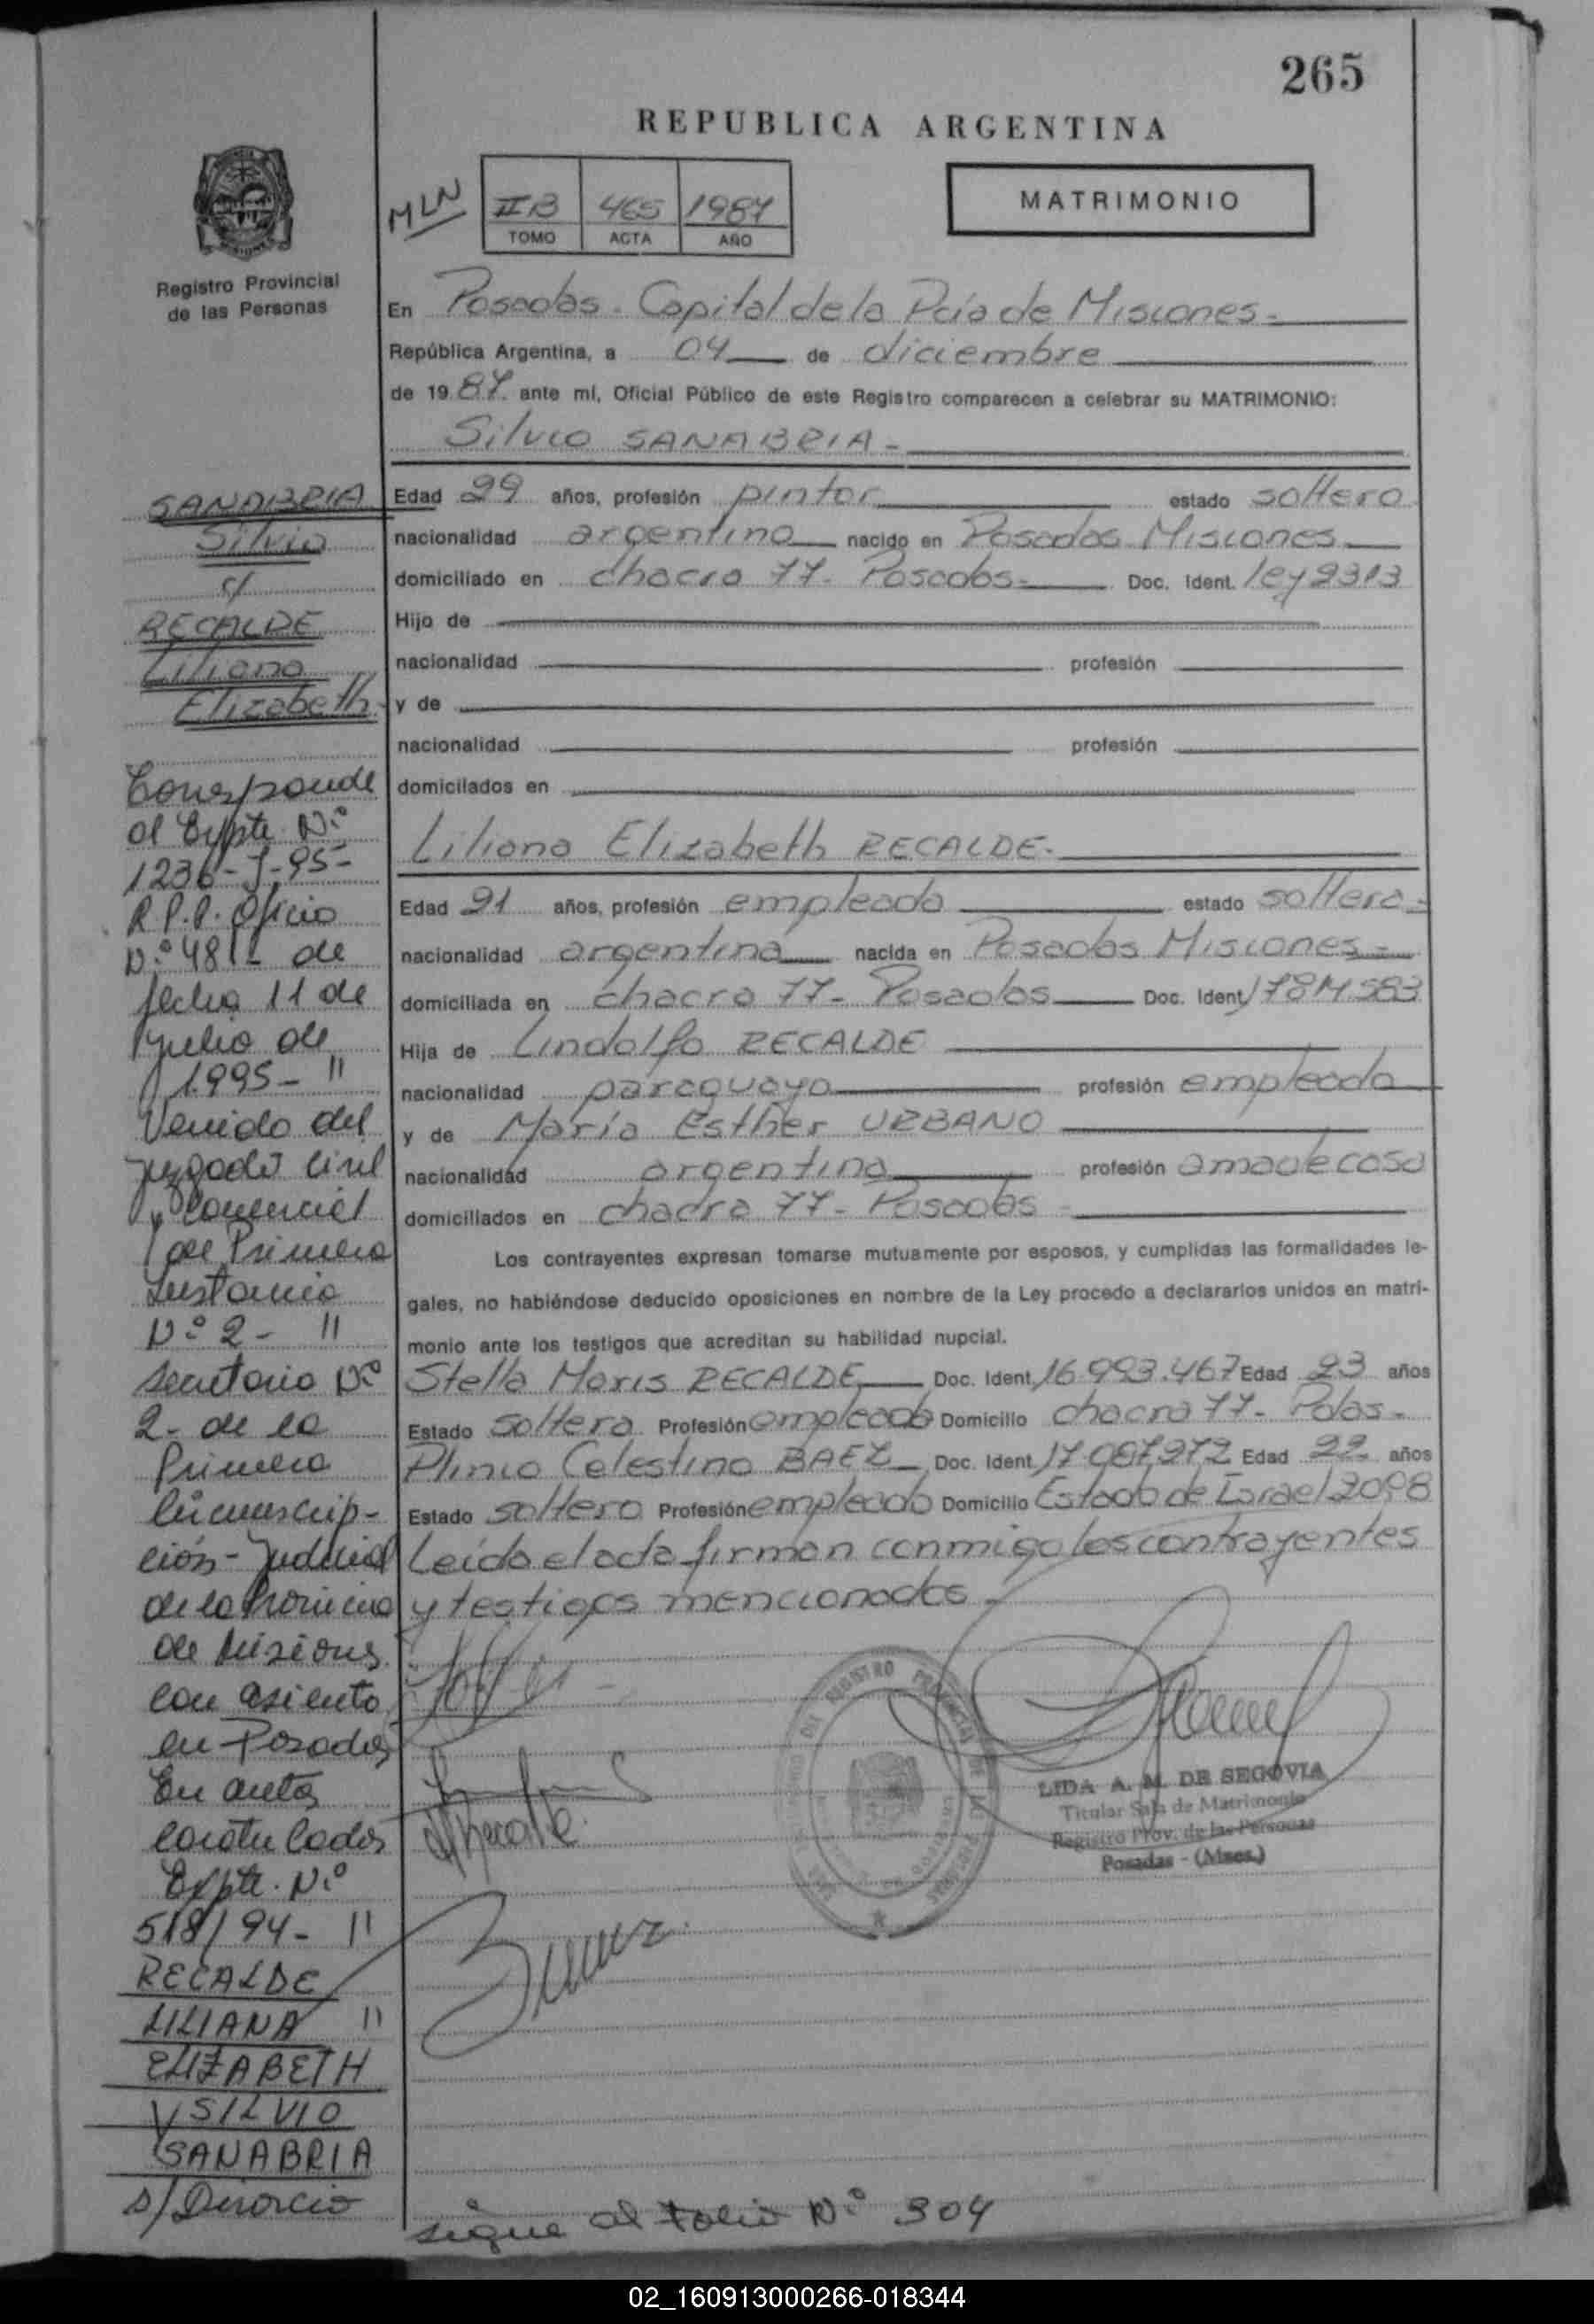 265
REPUBLICA ARGENTINA
MLN
IIB 465 1987
TOMO ACTA AÑO
MATRIMONIO
Registro Provincial
de las Personas
En Posadas. Capital de la Pcia de Misiones.
República Argentina, a 04 de diciembre
de 1987. ante mí, Oficial Público de este Registro comparecen a celebrar su MATRIMONIO:
Silvio SANABRIA
SANABRIA
Silvio
c/
RECALDE
Liliana
Elizabeth
Edad 29 años, profesión pintor estado soltero
nacionalidad argentino nacido en Posadas Misiones
domiciliado en chacra 77- Posadas- Doc. Ident. ley 2313
Hijo de
nacionalidad profesión
y de
nacionalidad profesión
domiciliados en
Liliana Elizabeth RECALDE.
Edad 21 años, profesión empleada estado soltera
nacionalidad argentina nacida en Posadas Misiones
domiciliada en chacra 77- Posadas Doc. Ident.
Hija de Lindolfo RECALDE
nacionalidad paraguayo profesión empleado
y de María Esther URBANO
nacionalidad argentina profesión ama de casa
domiciliados en chacra 77- Posadas
Los contrayentes expresan tomarse mutuamente por esposos, y cumplidas las formalidades le-
gales, no habiéndose deducido oposiciones en nombre de la Ley procedo a declararlos unidos en matri-
monio ante los testigos que acreditan su habilidad nupcial.
Stella Maris RECALDE Doc. Ident. 16.993.467 Edad 23 años
Estado soltera Profesión empleada Domicilio chacra 77- Pdas-
Plinio Celestino BAEZ Doc. Ident. 17.087.272 Edad 22 años
Estado soltero Profesión empleado Domicilio Estado de Israel 2098
Leída el acta firman conmigo los contrayentes
y testigos mencionados
Corresponde
al Expte. Nº
1236-J-95-
R.P.P. Oficio
Nº 481- de
fecha 11 de
julio de
1995- "
Venido del
juzgado Civil
y Comercial
de Primera
Instancia
Nº 2- "
Secretaria Nº
2- de la
Primera
Circunscrip-
ción- Judicial
de la Provincia
de Misiones
con asiento
en Posadas
En autos
caratulados
Expte. Nº
518/94- "
RECALDE
LILIANA "
ELIZABETH
Y SILVIO
SANABRIA
s/Divorcio
LIDA A. M. DE SEGOVIA
Titular Sala de Matrimonio
Registro Prov. de las Personas
Posadas - (Mnes.)
sigue al folio Nº 304
02_160913000266-018344